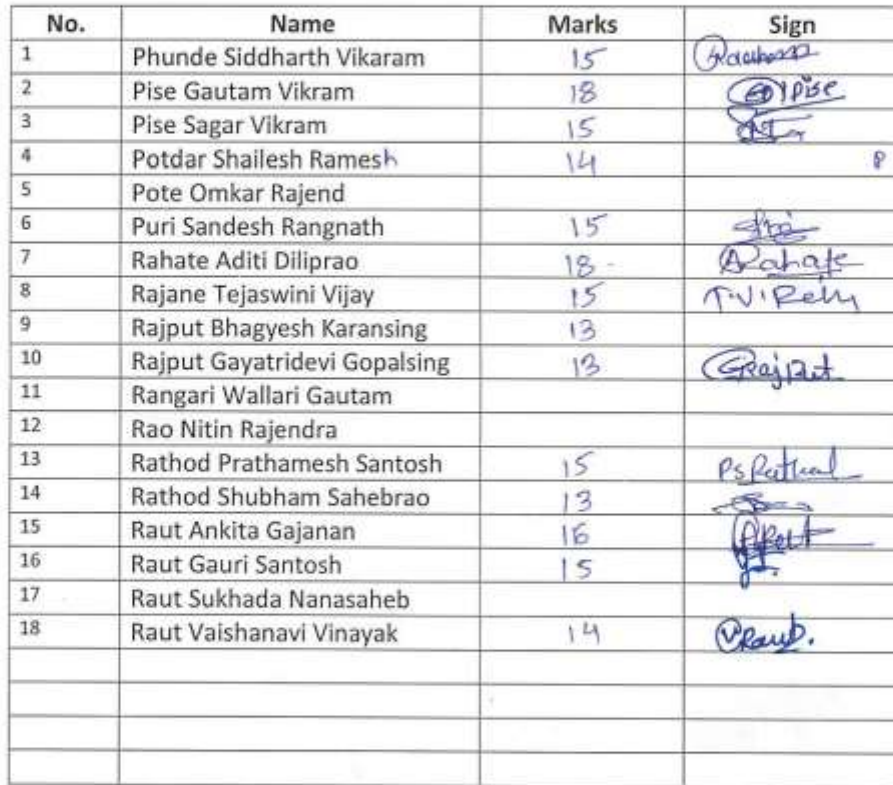 No. Name Marks Sign
1 Phunde Siddharth Vikaram 15
2 Pise Gautam Vikram 18 Pise
3 Pise Sagar Vikram 15
4 Potdar Shailesh Ramesh 14
5 Pote Omkar Rajend
6 Puri Sandesh Rangnath 15
7 Rahate Aditi Diliprao 18 - ARahate
8 Rajane Tejaswini Vijay 15
9 Rajput Bhagyesh Karansing 13
10 Rajput Gayatridevi Gopalsing 13 GRajput
11 Rangari Wallari Gautam
12 Rao Nitin Rajendra
13 Rathod Prathamesh Santosh 15
14 Rathod Shubham Sahebrao 13
15 Raut Ankita Gajanan 16
16 Raut Gauri Santosh 15
17 Raut Sukhada Nanasaheb
18 Raut Vaishanavi Vinayak 14